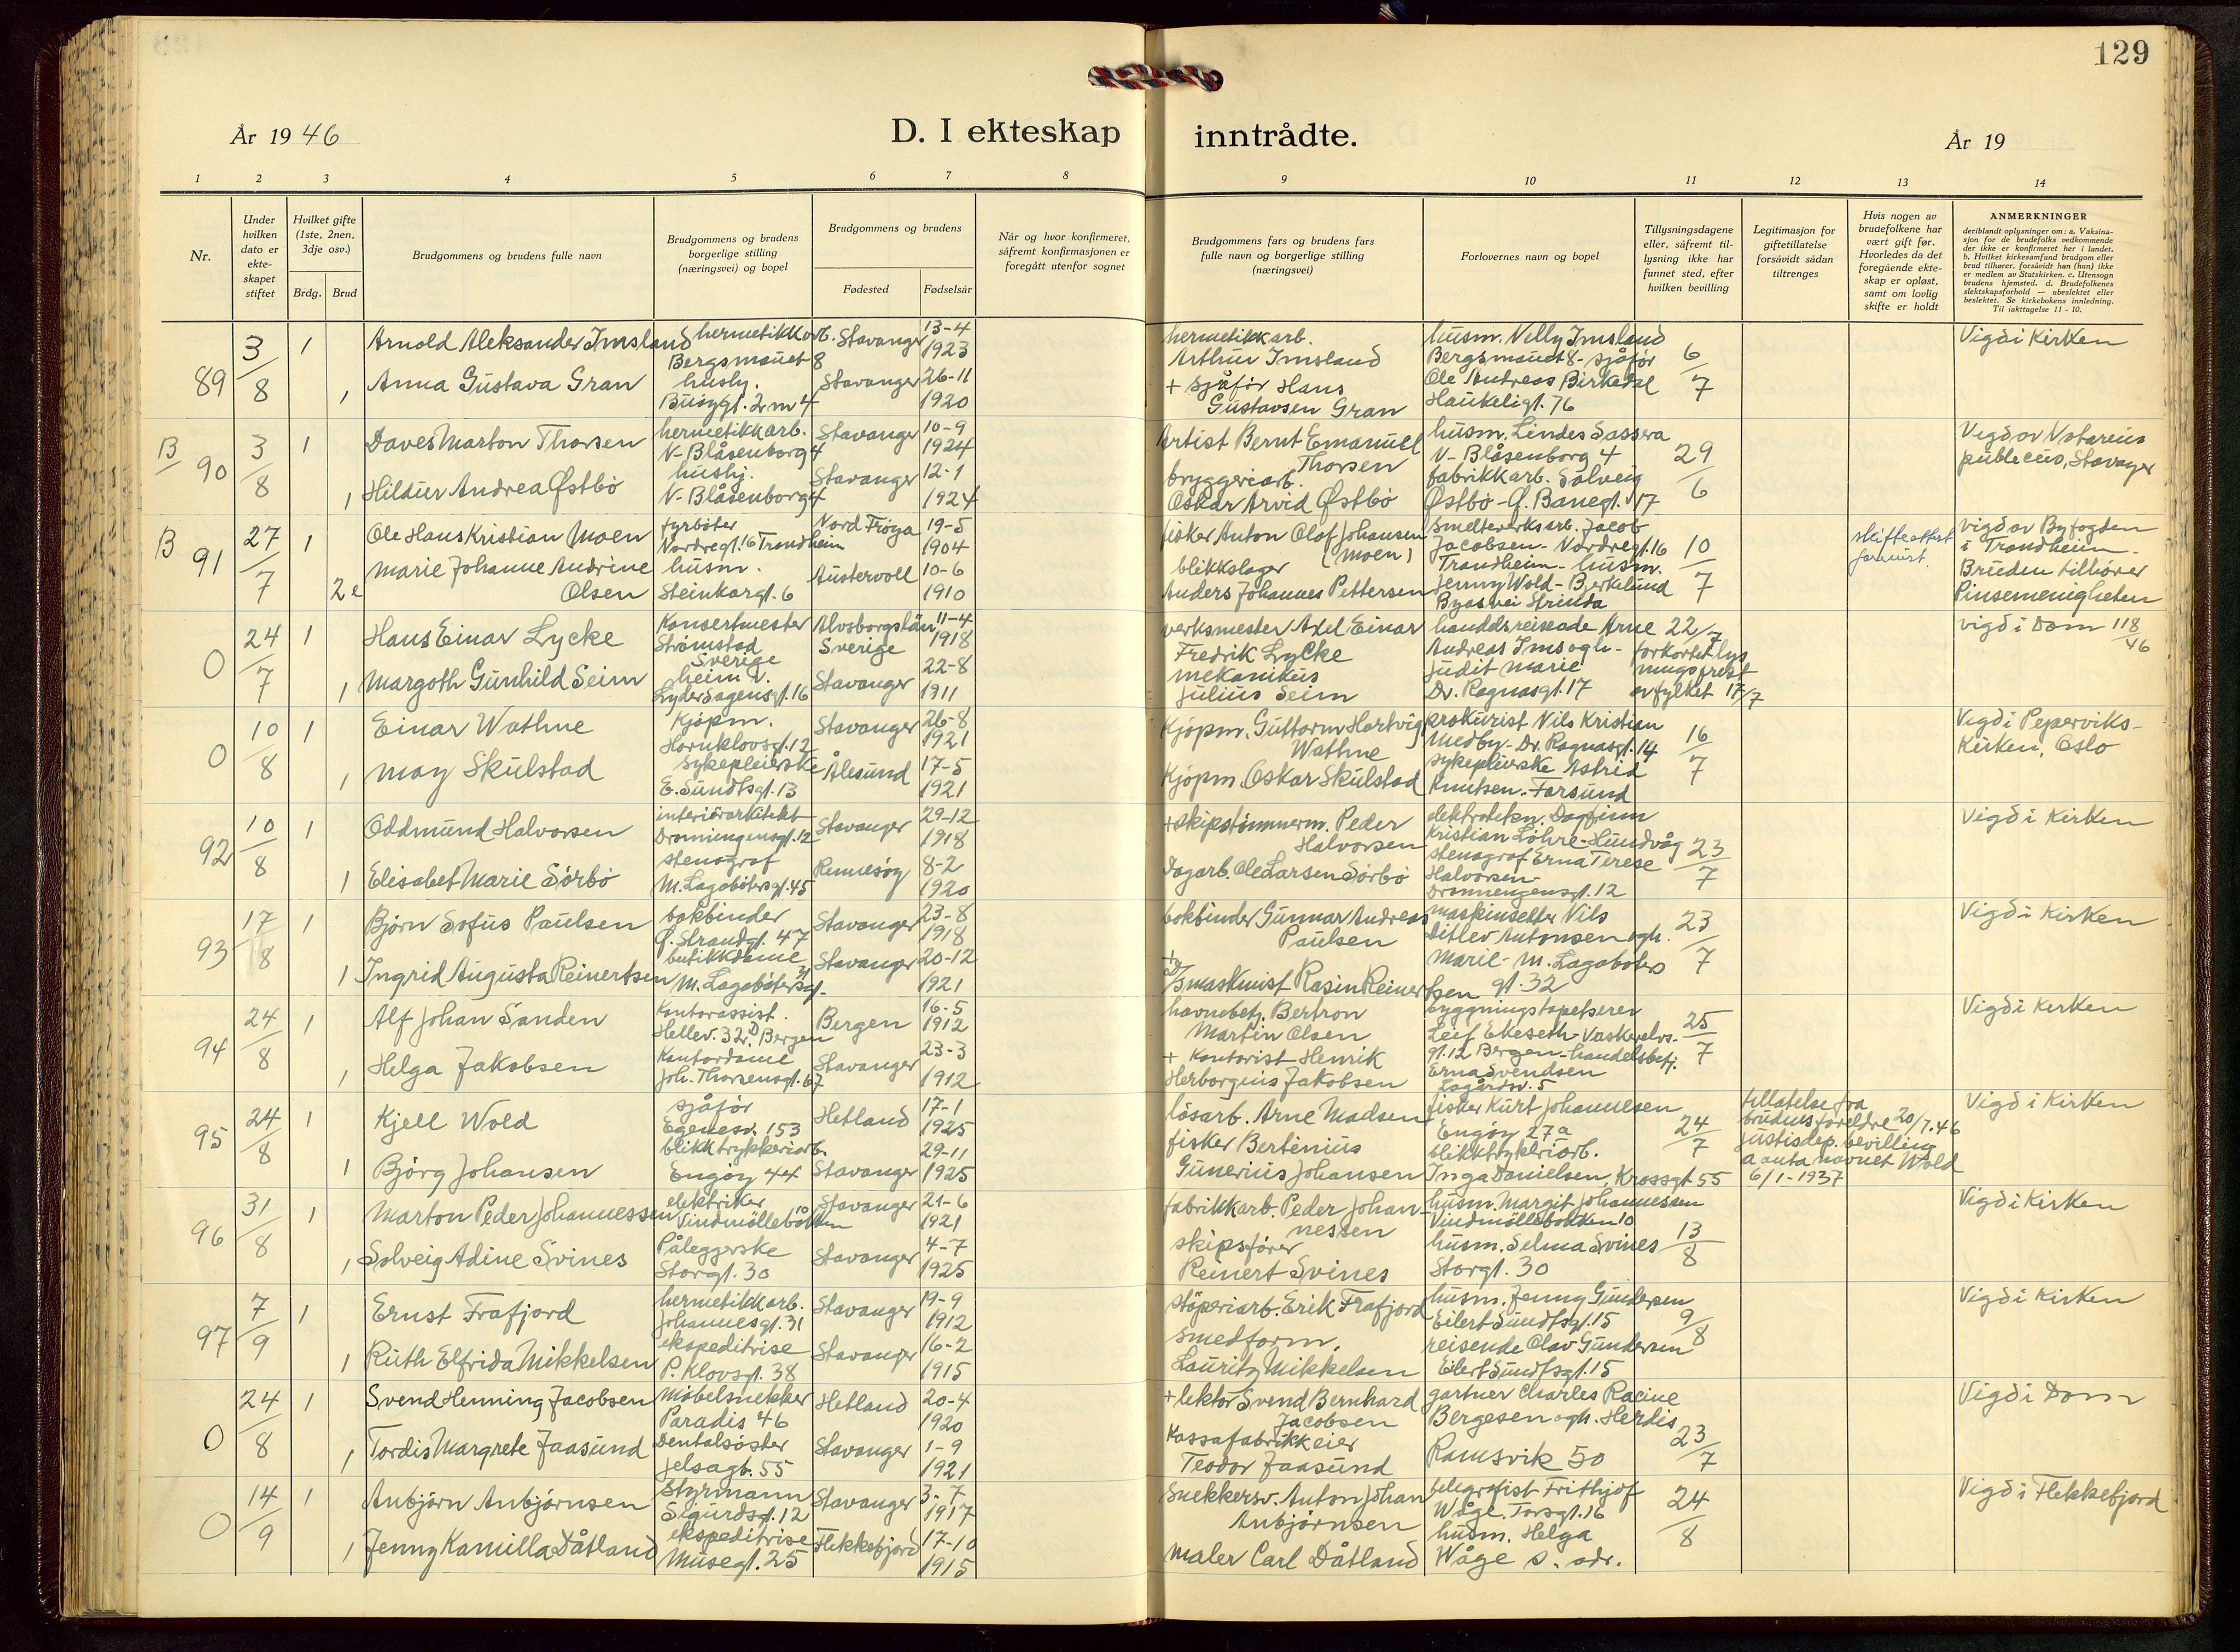 129
År 19 46
D. I ekteskap inntrådte.
År 19
1 2 3 4 5 6 7 8 9 10 11 12 13 14
Nr.
Under hvilken dato er ekte-skapet stiftet
Hvilket gifte (1ste, 2nen, 3dje osv.)
Brdg. Brud
Brudgommens og brudens fulle navn
Brudgommens og brudens borgerlige stilling (næringsvei) og bopel
Brudgommens og brudens
Fødested Fødselsår
Når og hvor konfirmeret, såfremt konfirmasjonen er foregått utenfor sognet
Brudgommens fars og brudens fars fulle navn og borgerlige stilling (næringsvei)
Forlovernes navn og bopel
Tillysningsdagene eller, såfremt til-lysning ikke har funnet sted, efter hvilken bevilling
Legitimasjon for giftetillatelse forsåvidt sådan tiltrenges
Hvis nogen av brudefolkene har vært gift før. Hvorledes da det foregående ekte-skap er opløst, samt om lovlig skifte er holdt
ANMERKNINGER
deriblandt oplysninger om: a. Vaksina-sjon for de brudefolks vedkommende der ikke er konfirmeret her i landet. b. Hvilket kirkesamfund brudgom eller brud tilhører, forsåvidt han (hun) ikke er medlem av Statskirken. c. Utensogn brudens hjemsted. d. Brudefolkenes slektskapsforhold — ubeslektet eller beslektet. Se kirkebokens innledning. Til iakttagelse 11 - 10.
89 3/8 1 Arnold Aleksander Imsland hermetikkarb. Bergsmauet 8 Stavanger 13-4 1923
hermetikkarb. Arthur Imsland husm. Nelly Imsland Bergsmauet 8 - sjåfør 6/7 Vigd i Kirken
1 Anna Gustava Gran hushj. Stavanger 26-11 1920
+ sjåfør Hans Gustavsen Gran Ole Andreas Birkedal Haukeligt. 76
B 90 3/8 1 Daves Marton Thorsen hermetikkarb. N-Blåsenborg 4 Stavanger 10-9 1924
Artist Bernt Emanuel Thorsen husm. N-Blåsenborg 4 29/6 Vigd av Notarius publicus, Stavanger
1 Hildur Andrea Østbø hushj. N-Blåsenborg 4 Stavanger 12-1 1924
bryggeriarb. Oskar Arvid Østbø fabrikkarb. Solveig Østbø - Ø. Banegt. 17
B 91 27/7 1 Ole Hans Kristian Moen fyrbøter Nordregt. 16 Trondheim Nord Frøya 19-5 1904
fisker Anton Olof Johansen (Moen) smelteverksarb. Jacob Jacobsen - Nordregt. 16 Trondheim - husm. 10/7 skifteattest vigd av Byfogden i Trondheim.
2e Marie Johanne Andrine Olsen husm. Steinkargt. 6 Austervoll 10-6 1910
blikkslager Anders Johannes Pettersen Jenny Wold - Berkelund Strinda Bruden tilhører Pinsemenigheten
0 24/7 1 Hans Einar Lycke Konsertmester Strømstad Sverige Alvsborgslän Sverige 11-4 1918
verksmester Axel Einar Fredrik Lycke handelsreisende Arne Andreas Ims ogh. 22/7 forkortet lysningsfrist av fylket 17/7 vigd i Dom 118/46
1 Margoth Gunhild Seim heim v. Lyder Sagensgt. 16 Stavanger 22-8 1911
mekanikus Julius Seim Judit Marie Dr. Ragnasgt. 17
0 10/8 1 Einar Wathne Kjøpm. Hornklovsgt. 12 Stavanger 26-8 1921
Kjøpm. Guttorm Hartvig Wathne prokurist Nils Kristian Medby - Dr. Ragnasgt. 14 16/7 Vigd i Peperviks-Kirken, Oslo
1 May Skulstad sykepleierske E. Sundtsgt. 13 Ålesund 17-5 1921
Kjøpm. Oskar Skulstad sykepleierske Astrid Knutsen - Farsund
92 10/8 1 Oddmund Halvorsen interiørarkitekt Dronningensgt. 12 Stavanger 29-12 1918
+ skipstømmerm. Peder Halvorsen Dagfinn Kristian Løhre - Hundvåg 23/7 Vigd i Kirken
1 Elisabet Marie Sørbø stenograf M. Lagabøtersgt. 45 Rennesøy 8-2 1920
Dagarb. Ole Larsen Sørbø stenograf Erna Terese Halvorsen - Dronningensgt. 12
93 17/8 1 Bjørn Sofus Paulsen bokbinder Ø. Strandgt. 47 Stavanger 23-8 1918
bokbinder Gunnar Andreas Paulsen maskinsetter Nils Ditlev Antonsen ogh. 23/7 Vigd i Kirken
1 Ingrid Augusta Reinertsen butikkdame M. Lagabøtersgt. 31 Stavanger 20-12 1921
+ D/Smaskinist Rasin Reinertsen Marie - M. Lagabøters gt. 32
94 24/8 1 Alf Johan Sanden Kontorassist. Bergen Bergen 16-5 1912
havnebetj. Bertron Martin Olsen Leif Ekeseth - gt. 12 Bergen - handelsbetj. 25/7 Vigd i Kirken
1 Helga Jakobsen Kontordame Joh. Thorsensgt. 67 Stavanger 23-3 1912
+ Kontorist Henrik Herborgius Jakobsen Erna Svendsen Lagårdsv. 5
95 24/8 1 Kjell Wold sjåfør Egenesv. 153 Hetland 17-1 1925
løsarb. Arne Madsen fisker Kurt Johannesen Engøy 27a 24/7 tillatelse fra brudens foreldre 20/7.46 Vigd i Kirken
1 Bjørg Johansen blikktrykkeriarb. Engøy 44 Stavanger 29-11 1925
fisker Bertinius Gunerius Johansen blikktrykkeriarb. Inga Danielsen, Krossgt 55 justisdep. bevilling a anta navnet Wold 6/1-1937
96 31/8 1 Marton Peder Johannessen elektriker Vindmøllebakken 10 Stavanger 21-6 1921
fabrikkarb. Peder Johannessen husm. Margit Johannessen Vindmøllebakken 10 13/8 Vigd i Kirken
1 Solveig Adine Svines Påleggerske Storgt. 30 Stavanger 4-7 1925
skipsfører Reinert Svines husm. Selma Svines Storgt. 30
97 7/9 1 Ernst Frafjord hermetikkarb. Johannesgt. 31 Stavanger 19-9 1912
støperiarb. Erik Frafjord husm. Jenny Gundersen Eilert Sundtsgt. 15 9/8 Vigd i Kirken
1 Ruth Elfrida Mikkelsen ekspeditrise P. Klovsgt. 38 Stavanger 16-2 1915
smedform. Lauritz Mikkelsen reisende Olav Gundersen Eilert Sundtsgt. 15
0 24/8 1 Svend Henning Jacobsen Møbelsnekker Paradis 46 Hetland 20-4 1920
+ lektor Svend Bernhard Jacobsen gartner Charles Racine Bergesen ogh. Herdis 23/7 Vigd i Dom
1 Tordis Margrete Jaasund Dentalsøster Jelsagt. 55 Stavanger 1-9 1921
Kassafabrikkeier Teodor Jaasund Ramsvik 50
0 14/9 1 Anbjørn Anbjørnsen Styrmann Sigurdsgt. 12 Stavanger 3-7 1917
Snekkersv. Anton Johan Anbjørnsen telegrafist Frithjof Wåge. Torsgt. 16 24/8 Vigd i Flekkefjord
1 Jenny Kamilla Dåtland ekspeditrise Musegt. 25 Flekkefjord 17-10 1915
maler Carl Dåtland husm. Helga Wåge s. adr.